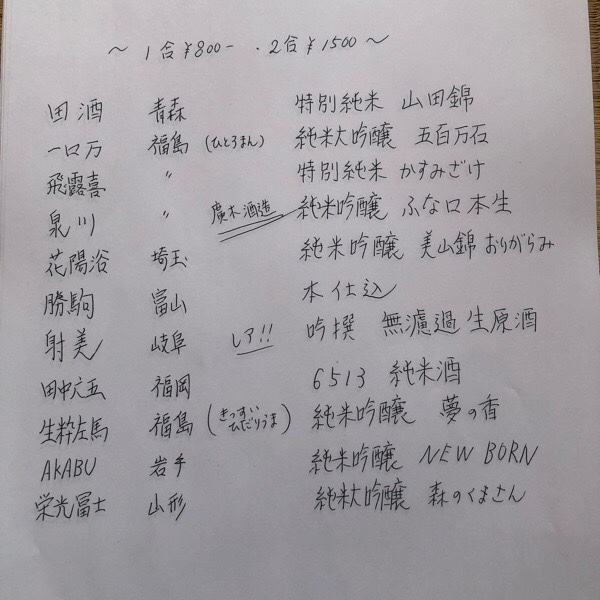 ～ 1合 ¥800- ・2合 ¥1500 ～
田酒 青森 特別純米 山田錦
一口万 福島 (ひとろまん) 純米大吟醸 五百万石
飛露喜 〃 特別純米 かすみざけ
泉川 〃 廣木酒造 純米吟醸 ふな口本生
花陽浴 埼玉 純米吟醸 美山錦 おりがらみ
勝駒 富山 本仕込
射美 岐阜 レア!! 吟撰 無濾過生原酒
田中六五 福岡 6513 純米酒
生粋左馬 福島 (きっすいひだりうま) 純米吟醸 夢の香
AKABU 岩手 純米吟醸 NEW BORN
栄光冨士 山形 純米大吟醸 森のくまさん